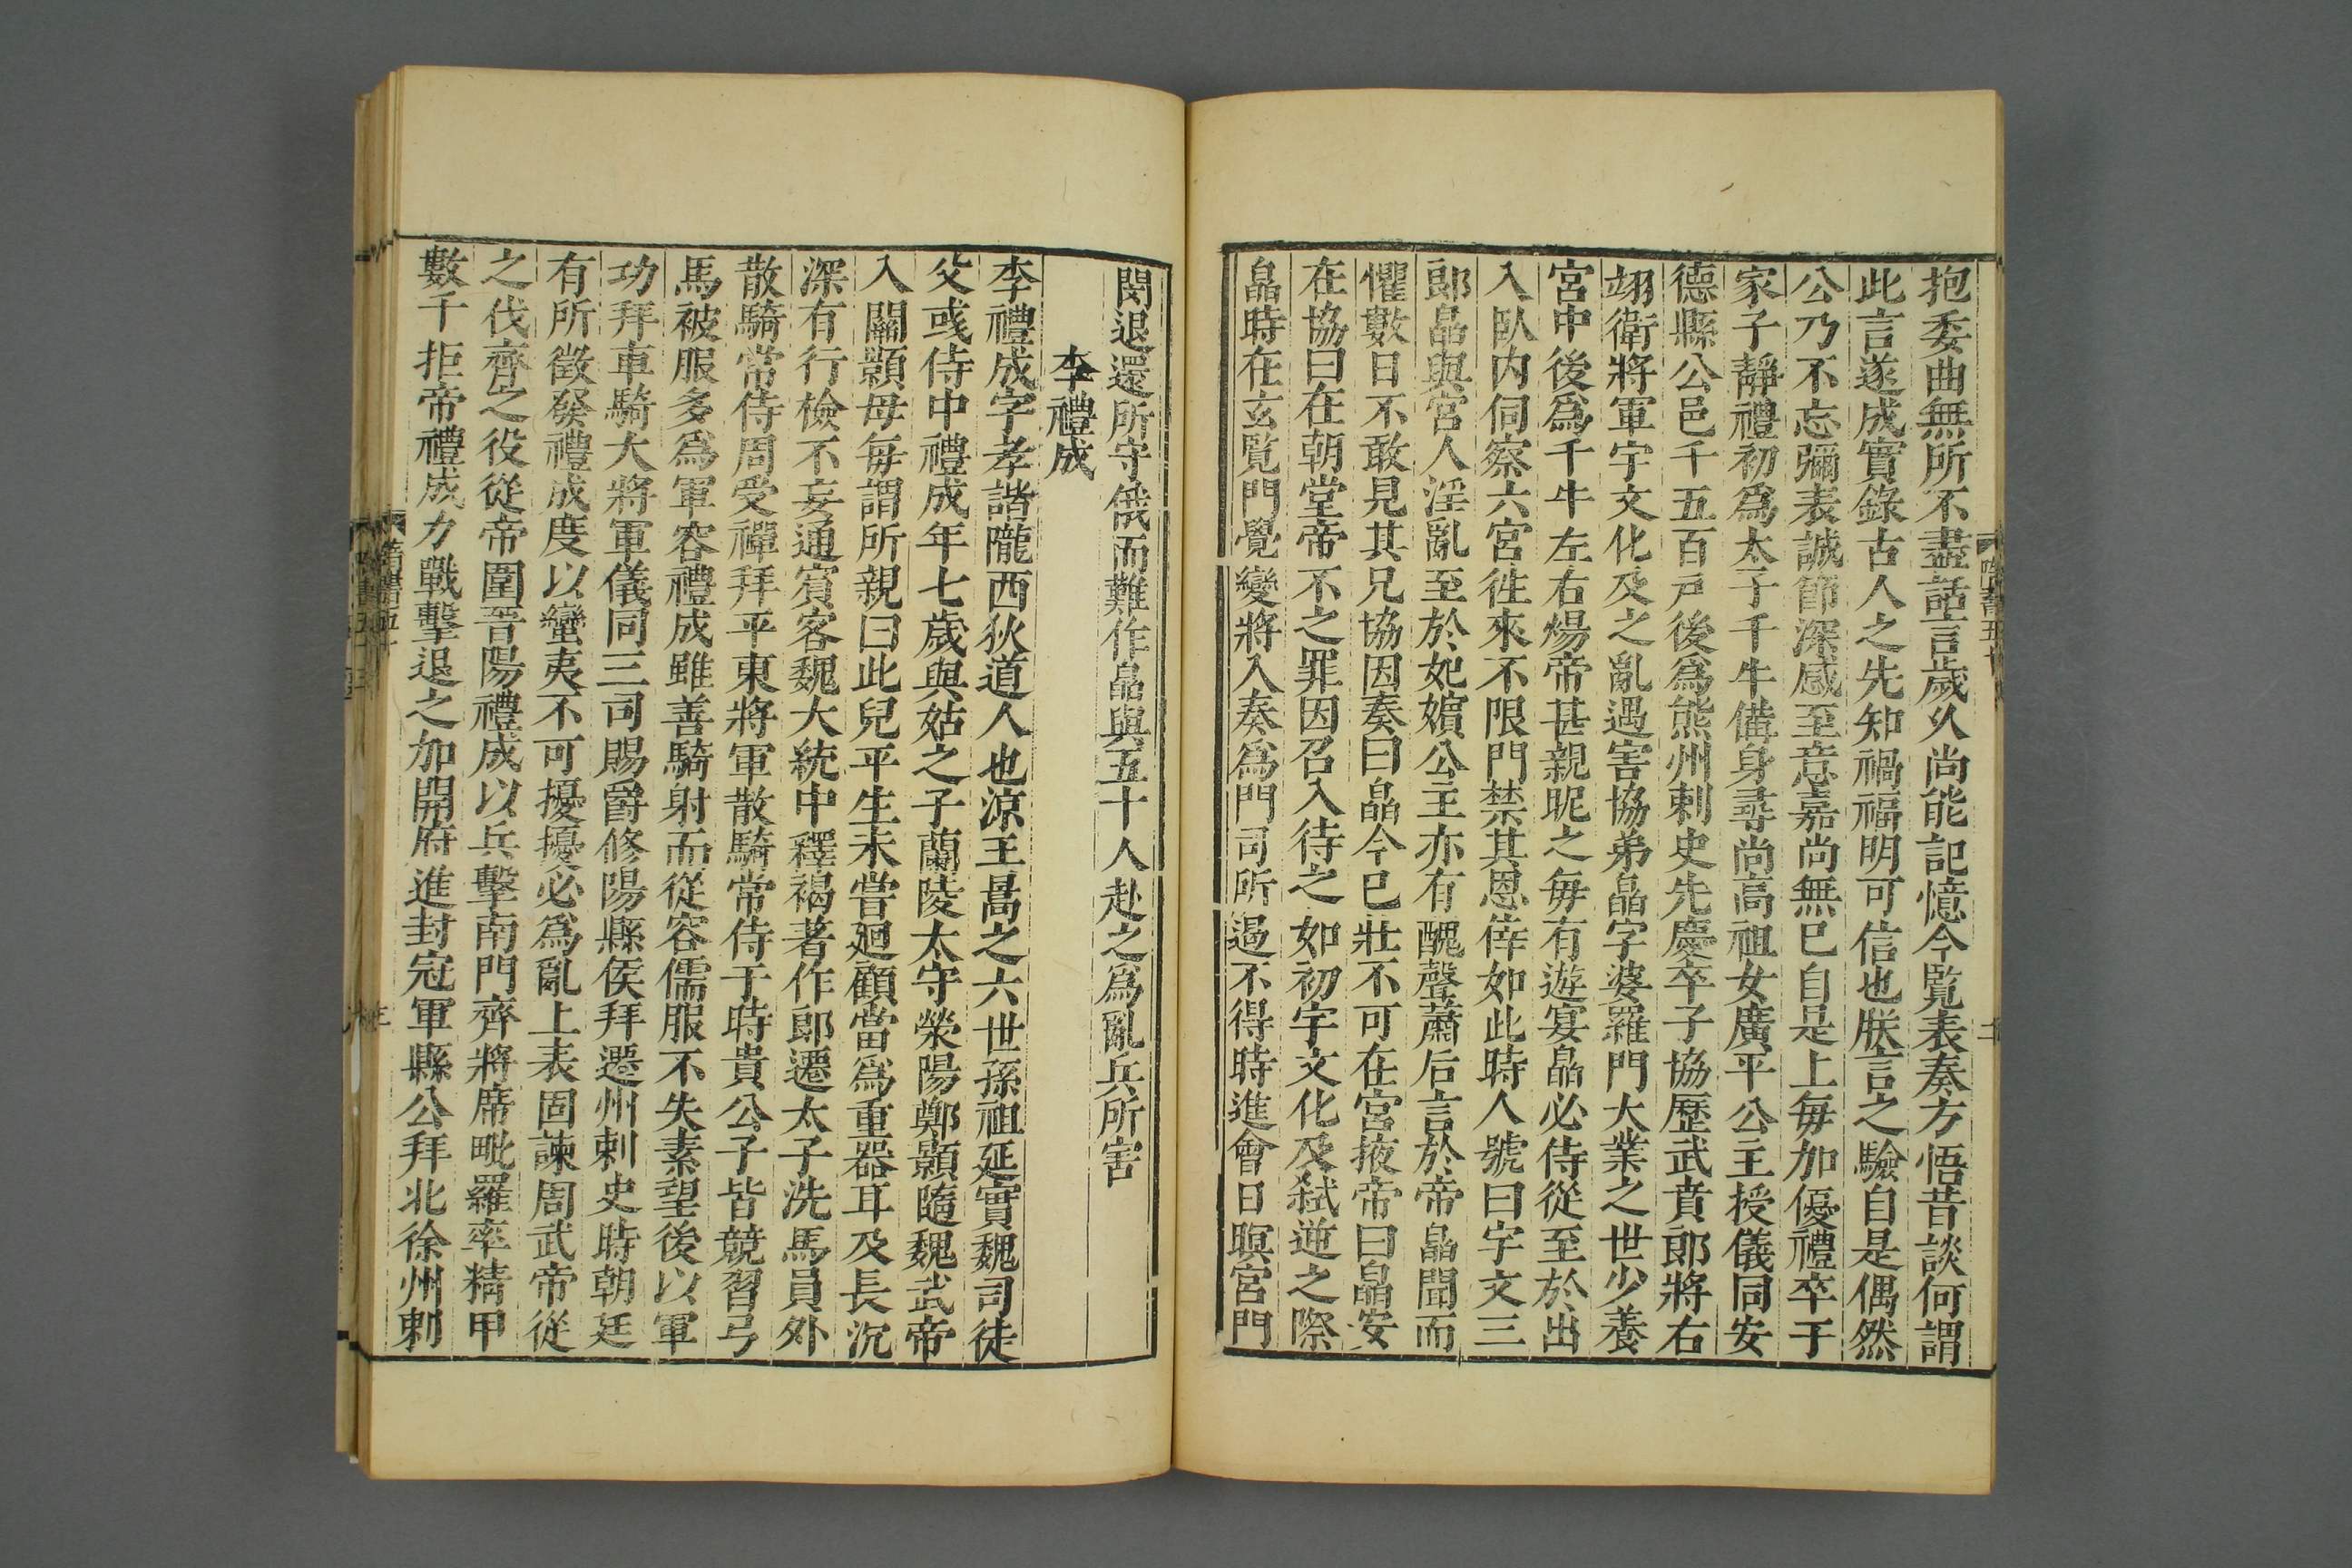 抱委曲無所不盡話言歲久尚能記憶今覽表奏方悟昔談何謂
此言遂成實錄古人之先知禍福明可信也朕言之驗自是偶然
公乃不忘彌表誠節深感至意嘉尚無已自是上每加優禮卒于
家子靜禮初爲太子千牛備身尋尚高祖女廣平公主授儀同安
德縣公邑千五百戸後爲熊州刺史先慶卒子協歷武賁郎將右
翊衛將軍宇文化及之亂遇害協弟皛字婆羅門大業之世少養
宮中後爲千牛左右煬帝甚親昵之每有遊宴皛必侍從至於出
入臥内伺察六宮徃來不限門禁其恩倖如此時人號曰宇文三
郎皛與宮人淫亂至於妃嬪公主亦有醜聲蕭后言於帝皛聞而
懼數日不敢見其兄協因奏曰皛今已壯不可在宮掖帝曰皛安
在協曰在朝堂帝不之罪因召入待之如初宇文化及弑逆之際
皛時在玄覽門覺變將入奏爲門司所遏不得時進會日暝宮門
閉退還所守俄而難作皛與五十人赴之爲亂兵所害
李禮成
李禮成字孝諧隴西狄道人也涼王暠之六世孫祖延實魏司徒
父彧侍中禮成年七歲與姑之子蘭陵太守滎陽鄭顥隨魏武帝
入關顥母每謂所親曰此兒平生未嘗廻顧當爲重器耳及長沉
深有行檢不妄通賓客魏大統中釋褐著作郎遷太子洗馬員外
散騎常侍周受禪拜平東將軍散騎常侍于時貴公子皆競習弓
馬被服多爲軍容禮成雖善騎射而從容儒服不失素望後以軍
功拜車騎大將軍儀同三司賜爵修陽縣侯拜遷州刺史時朝廷
有所徵發禮成度以蠻夷不可擾擾必爲亂上表固諫周武帝從
之伐齊之役從帝圍晉陽禮成以兵擊南門齊將席毗羅率精甲
數千拒帝禮成力戰擊退之加開府進封冠軍縣公拜北徐州刺